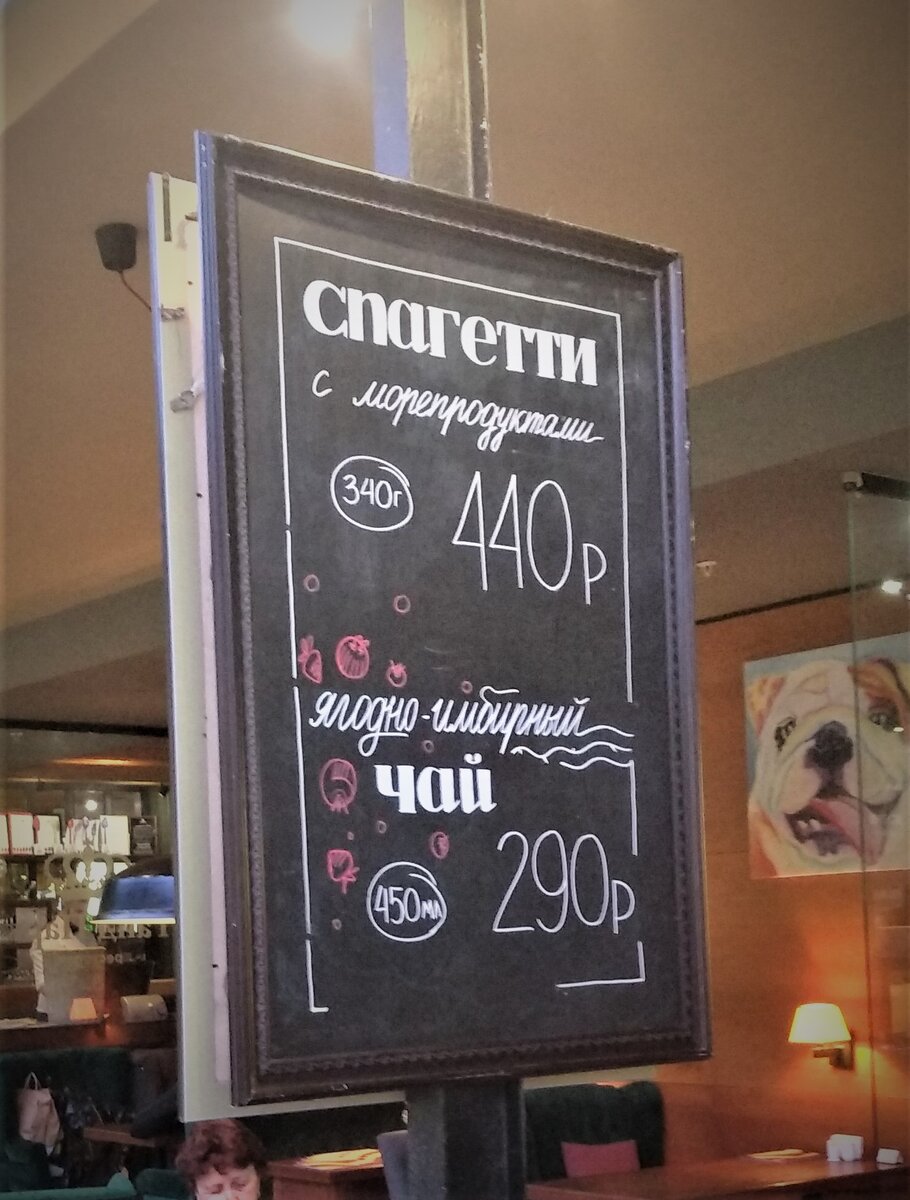 спагетти
с морепродуктами
340г
440р
ягодно-имбирный
чай
450мл
290р